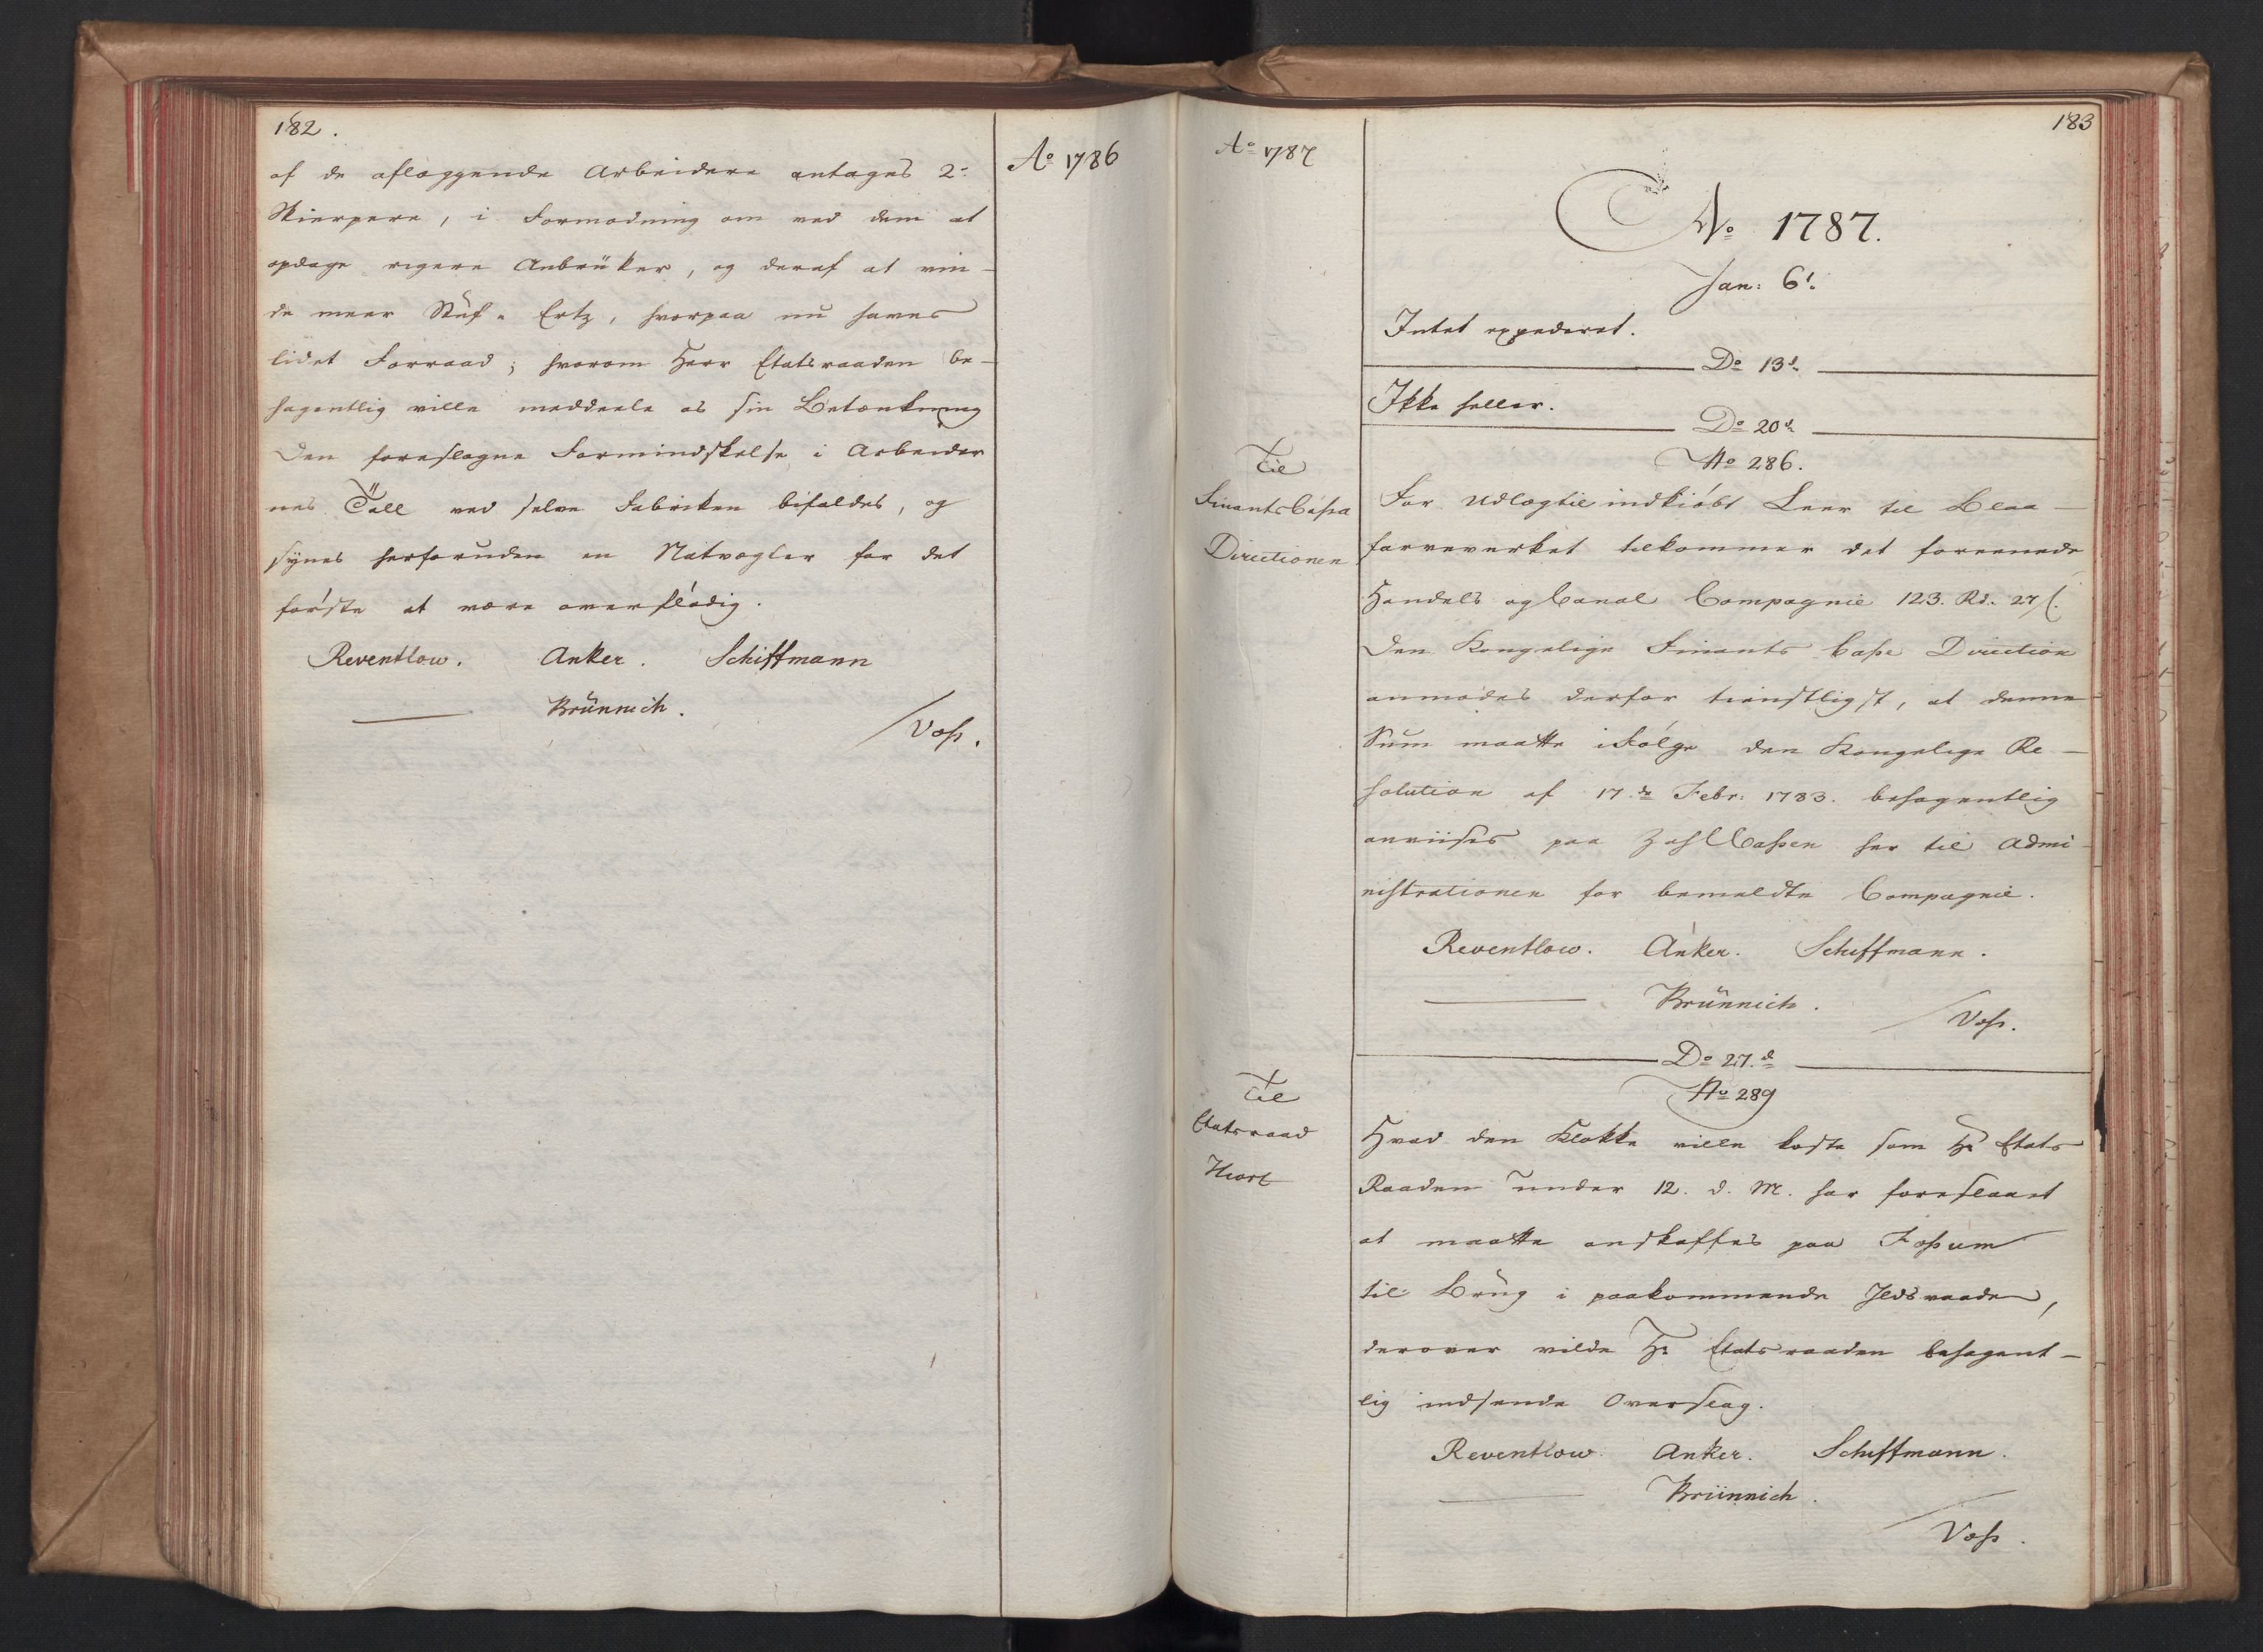 182.
Ao 1786
af de aflæggende Arbeidere antages 2de
Skierpere, i Formodning om ved dem at
opdage rigere Anbrüker, og deraf at vin-
de meer Stuf-Ertz, hvorpaa nu haves
lidet Forraad; hvorom Herr Etatsraaden be-
hagentlig ville meddeele os sin Betænkning
Den foreslagne Formindskelse i Arbeider
nes Tall ved selve Fabriken bifaldes, og
synes herforuden en Natvægter for det
første at være overflødig.
Reventlow. Anker. Schiffmann
Brünnich.
Voss.
183
Ao 1787
Ao 1787.
Jan: 6t.
Intet expederet.
Do 13d.
Ikke heller.
Do 20d.
No 286.
Til
Finants Cassa
Directionen
For Udlæg til indkiøbt Leer til Blaa-
farveverket tilkommer det foreenede
Handels og Canal Compagnie 123. Rd. 27 s.
Den Kongelige Finants Casse Direction
anmodes derfor tienstligst, at denne
Sum maatte i Følge den Kongelige Re-
solution af 17.de Febr: 1783. behagentlig
anviises paa Zahl Cassen her til Admi-
nistrationen for bemeldte Compagnie.
Reventlow. Anker. Schiffmann.
Brünnich.
Voss.
Do 27.d
No 289
Til
Etatsraad
Hiort
Hvad den Klokke ville koste som Hr Etats
Raaden under 12. d. M. har foreslaaet
at maatte anskaffes paa Fossum
til Brug i paakommende Ildsvaade,
derover vilde Hr Etatsraaden behagent-
lig indsende Overslag.
Reventlow. Anker. Schiffmann.
Brünnich.
Voss.